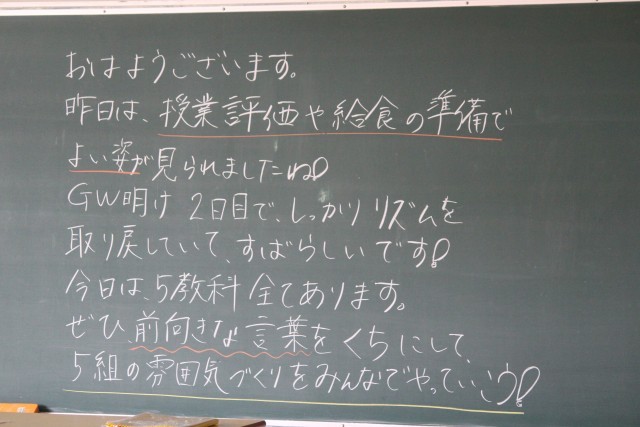 おはようございます。
昨日は、授業評価や給食の準備で
よい姿が見られましたね!
GW明け 2日目で、しっかりリズムを
取り戻していて、すばらしいです!
今日は、5教科全てあります。
ぜひ、前向きな言葉をくちにして、
5組の雰囲気づくりをみんなでやっていこう!